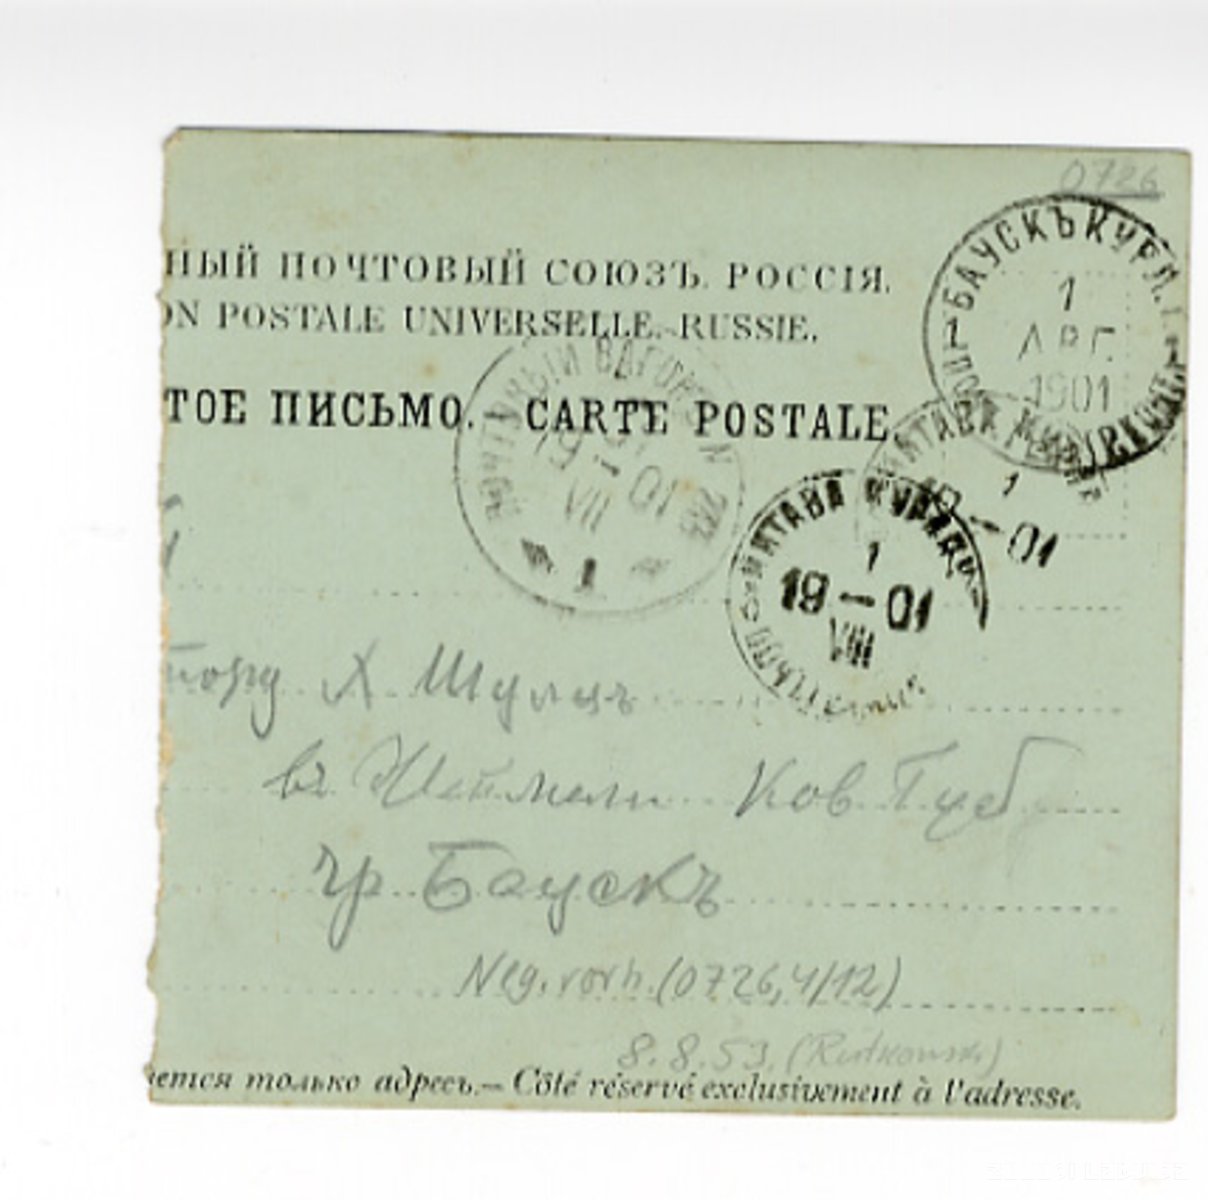 0726
НЫЙ ПОЧТОВЫЙ СОЮЗЪ. РОССІЯ.
ON POSTALE UNIVERSELLE. RUSSIE.
ТОЕ ПИСЬМО. CARTE POSTALE.
БАУСКЪ КУРЛ.
1
АВГ.
1901
ПОЧТОВЫЙ ВАГОНЪ N
19 01
VII
1
МИТАВА
1
19-01
МИТАВА КУРЛЯН
1
19-01
VIII
тору Х. Шульцъ
въ Ков Губ
гр Баускъ
Neg. vorh. (0726,4/12)
8.8.53. (Rutkowski)
ется только адресъ.— Côté réservé exclusivement à l'adresse.